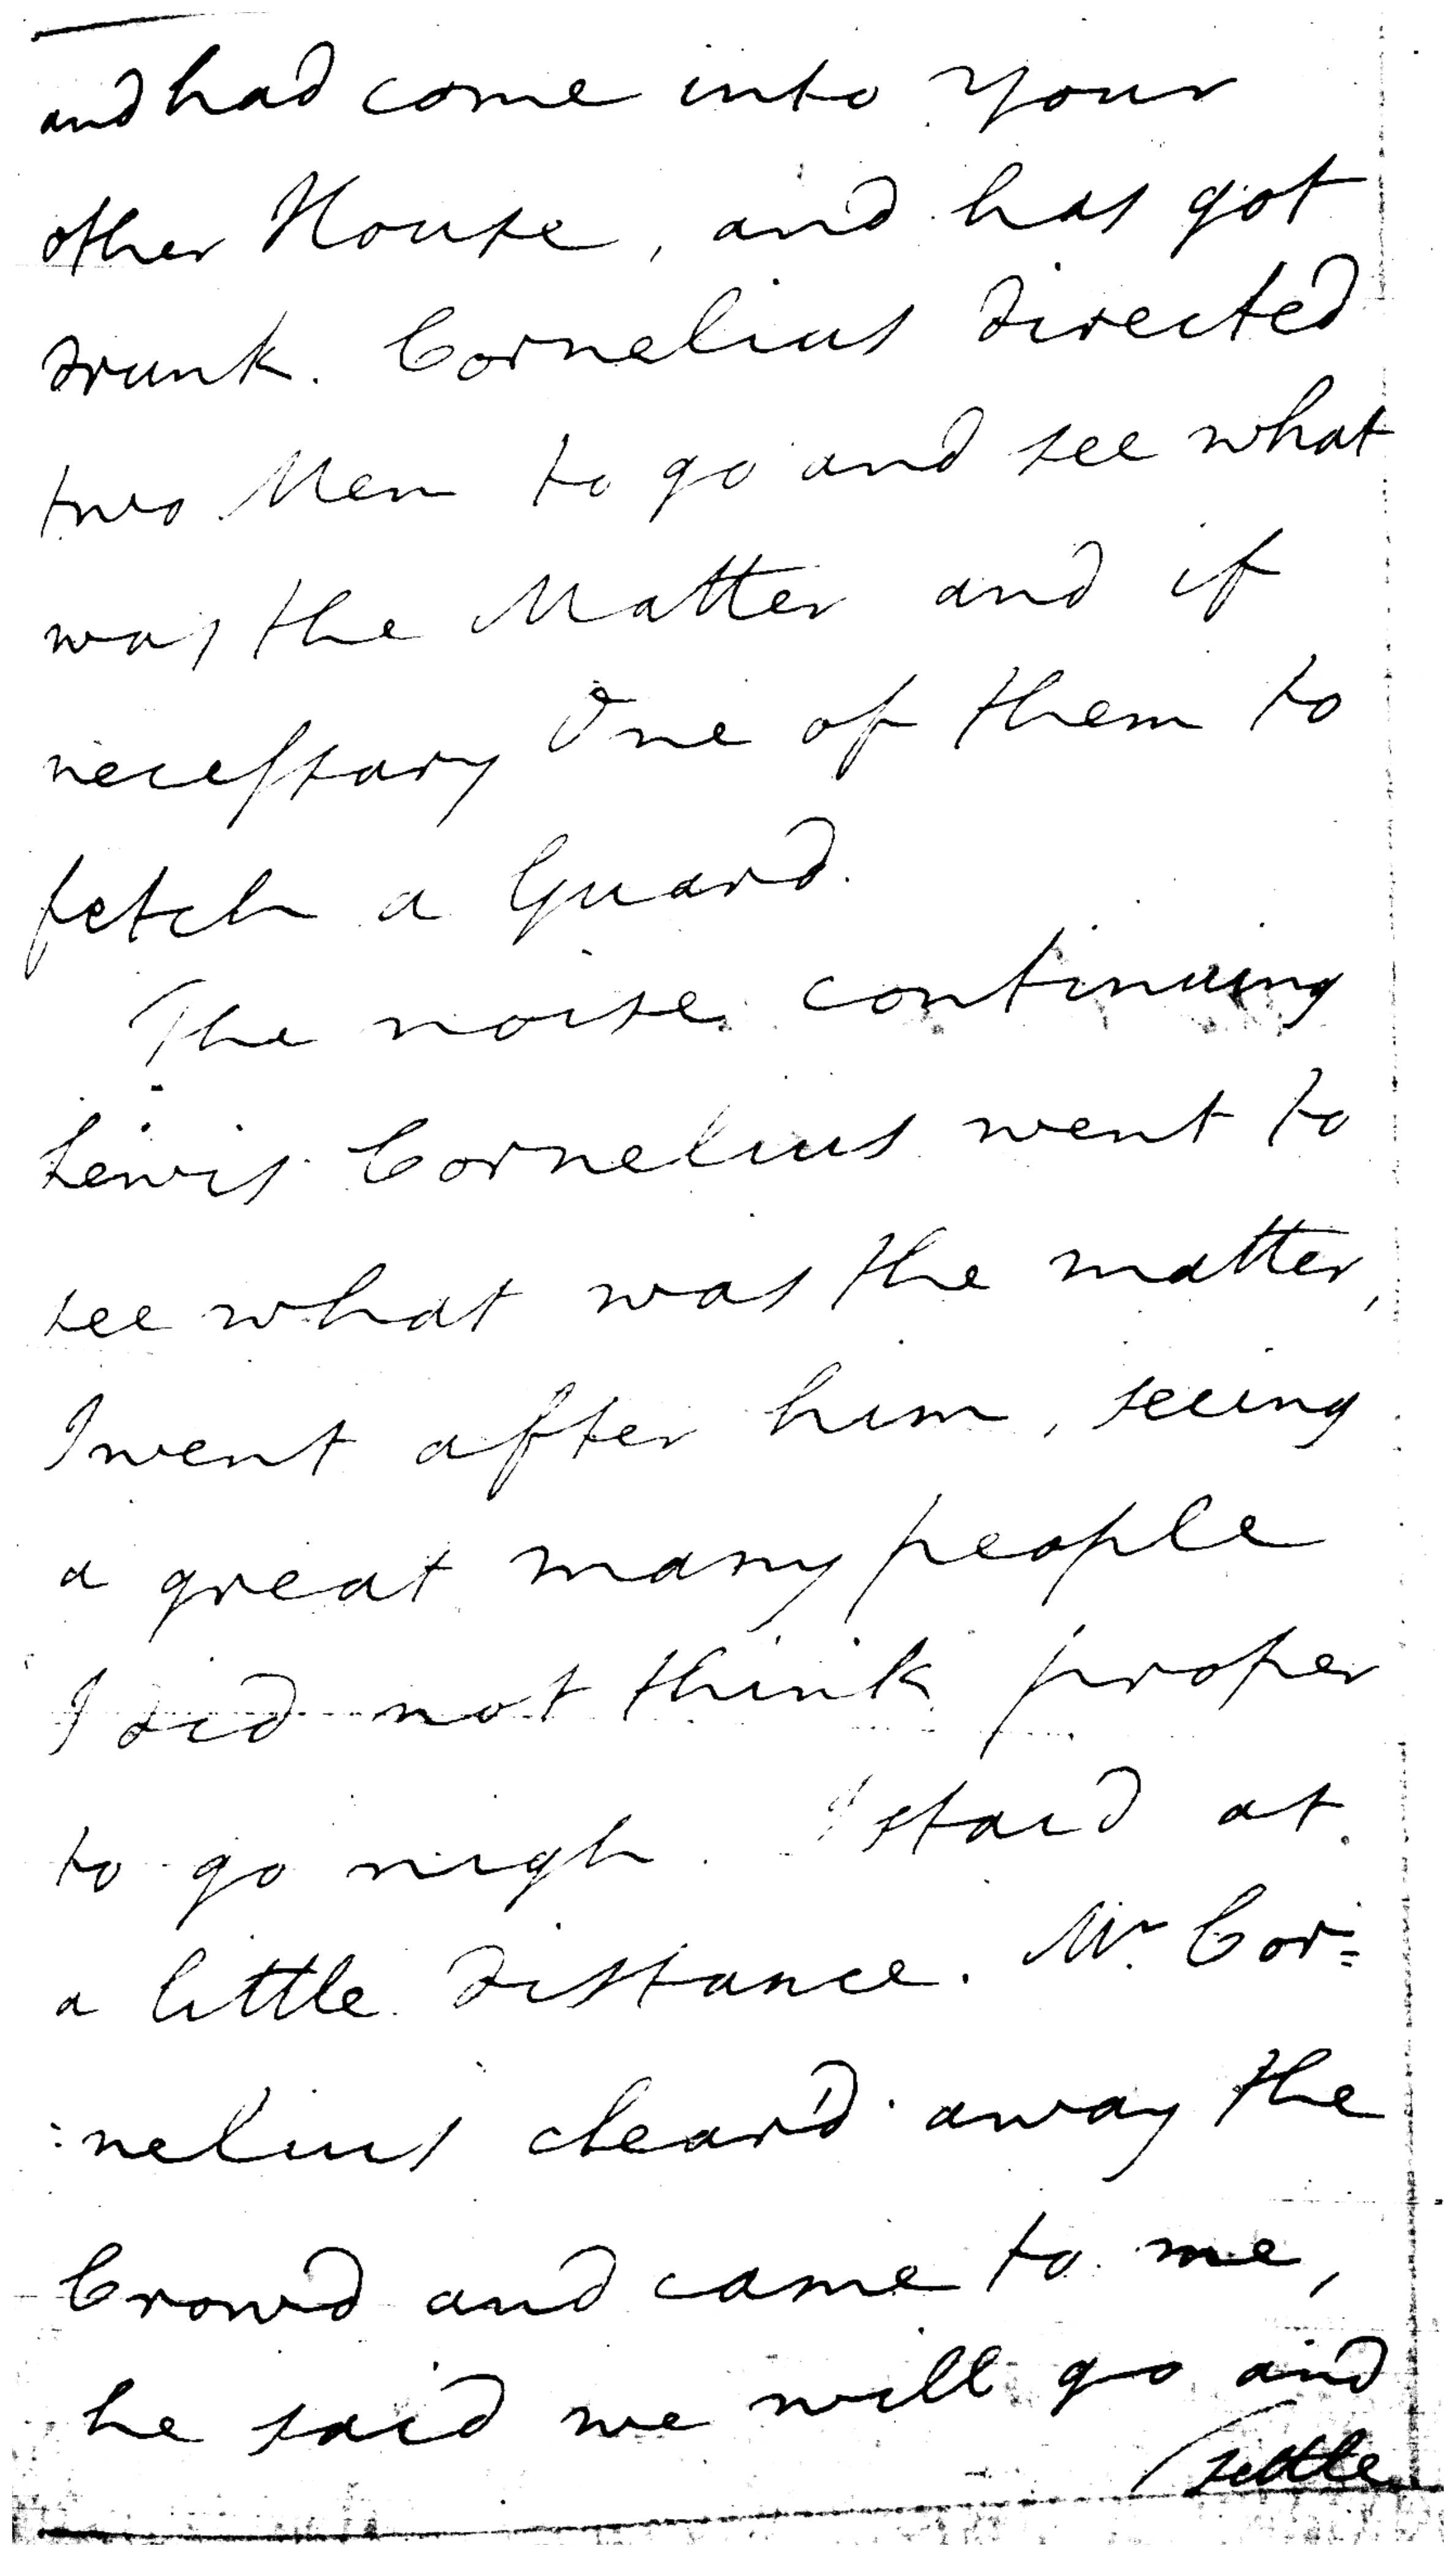 and had come into your
other House, and has got
drunk. Cornelius directed
two Men to go and see what
was the Matter and if
necessary One of them to
fetch a Guard.
The noise continuing
Lewis Cornelius went to
see what was the matter,
I went after him, seeing
a great many people
I did not think proper
to go nigh. I staid at
a little distance. Mr. Cor=
:nelius clear'd away the
Crowd and came to me,
he said we will go and
(settle